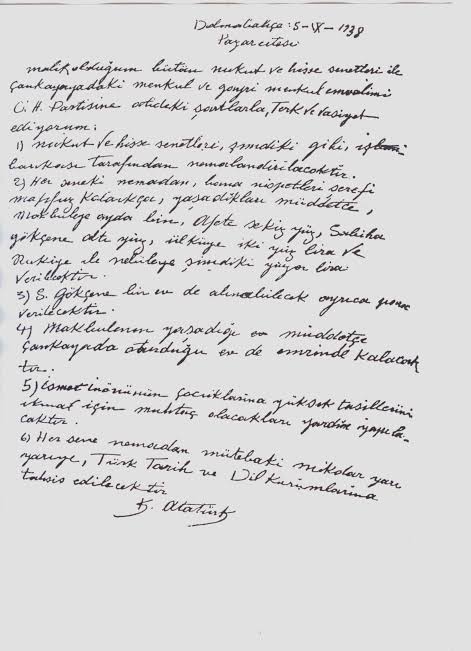 Dolmabahçe: 5-IX-1938
Pazartesi
malik olduğum bütün nukut ve hisse senetleri ile
Çankayadaki menkul ve gayri menkul emvalimi
C. H. Partisine atideki şartlarla, Terk ve vasiyet
ediyorum:
1) nukut ve hisse senetleri, şimdiki gibi, iş
bankası tarafından nemalandırılacaktır.
2) Her seneki nemadan, bana nispetleri şerefi
mahfuz kaldıkça, yaşadıkları müddetce,
Makbuleye ayda bin, Afete sekiz yüz, Sabiha
gökçene altı yüz, ülküye iki yüz lira ve
Rukiye ile nebileye şimdiki yüzer lira
verilecektir.
3) S. Gökçene bir ev de alınabilecek ayrıca para
verilecektir.
4) Makbulenin yaşadığı müddetçe
Çankayada oturduğu ev de emrinde kalacak
tır.
5) ismet inönünün çocuklarına yüksek tahsillerini
ikmal için muhtaç olacakları yardım yapıla-
caktır.
6) Her sene nemadan mütebaki mikdar yarı
yarıya, Türk Tarih ve Dil Kurumlarına
tahsis edilecektir
K. Atatürk